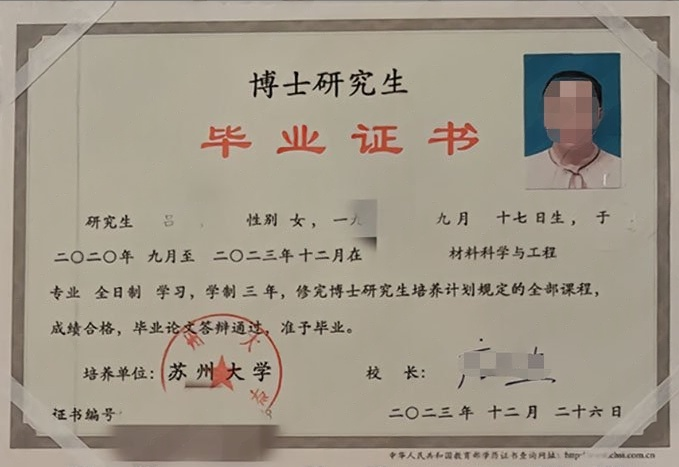 博士研究生
毕业证书
研究生 吕 性别 女，一九 九月 十七日生，于
二〇二〇年 九月至 二〇二三年十二月在 材料科学与工程
专业 全日制 学习，学制 三 年，修完博士研究生培养计划规定的全部课程，
成绩合格，毕业论文答辩通过，准予毕业。
培养单位：苏州大学 校 长：
证书编号
二〇二三年 十二月 二十六日
中华人民共和国教育部学历证书查询网址：http://www.chsi.com.cn